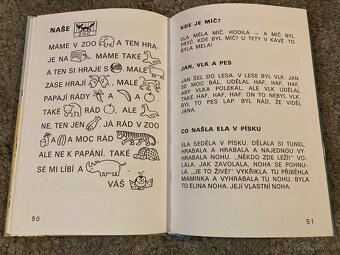 NAŠE
ZOO
MÁME V ZOO A TEN HRA-
JE NA . MÁME TAKÉ
A TEN SI HRAJE S . MALÉ
ZASE HRAJÍ S . MALÉ
PAPAJÍ RÁDY A
TAKÉ RÁD . ALE
NE, TEN JEN JÁ RÁD V ZOO
A A MOC RÁD
ALE NE K PAPÁNÍ. TAKÉ
SE MI LÍBÍ A
VÁŠ
50
KDE JE MÍČ?
ELA MĚLA MÍČ. HODILA — A MÍČ BYL
PRYČ. KDE BYL MÍČ? U TETY V KÁVĚ TO
BYLA MELA!
JAN, VLK A PES
JAN ŠEL DO LESA. V LESE BYL VLK. JAN
SE MOC BÁL. UDĚLAL HAF, HAF, HAF,
ABY VLKA POLEKAL. ALE VLK UDĚLAL
TAKÉ HAF, HAF, HAF. ON TO NEBYL VLK.
BYL TO PES LAP. BYL RÁD, ŽE VIDĚL
JANA.
CO NAŠLA ELA V PÍSKU
ELA SEDĚLA V PÍSKU. DĚLALA SI TUNEL.
HRABALA A HRABALA A NAJEDNOU VY-
HRABALA NOHU. „NĚKDO ZDE LEŽÍ!" VO-
LALA. JAK ZAVOLALA, NOHA SE POHNU-
LA. „JE TO ŽIVÉ!" VYKŘIKLA. TU PŘIBĚHLA
MAMINKA A VYHRABALA TU NOHU. BYLA
TO ELINA NOHA. JEJÍ VLASTNÍ NOHA.
51